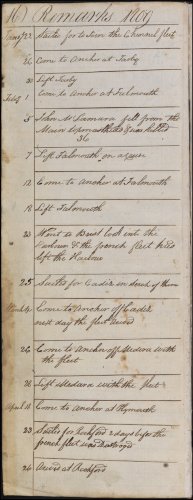 16) Remarks 1809
Jany 23 Sailed for to Join the Channel fleet
24 Come to Anchor at
31 Left
Feby 1 Come to Anker at Falmouth
5 John McNamara fell from the
Main topmasthead & was killed
36
7 Left Falmouth on a cruse
12 Come to Ancher at Falmouth
18 Left Falmouth
23 Went to Brest look into the
harbour & the french fleet had
left the Harbur
25 Sailed for Cadiz in serch of them
March 4 Come to Anchor off Cadiz
next day the fleet arived
24 Come to Ancher off Medara with
the fleet
28 Left Medara with the fleet
April 18 Come to Ancher at Plymouth
23 Sailed for Rochford 2 days befor the
french fleet was Distroyed
26 Arived at Rochford